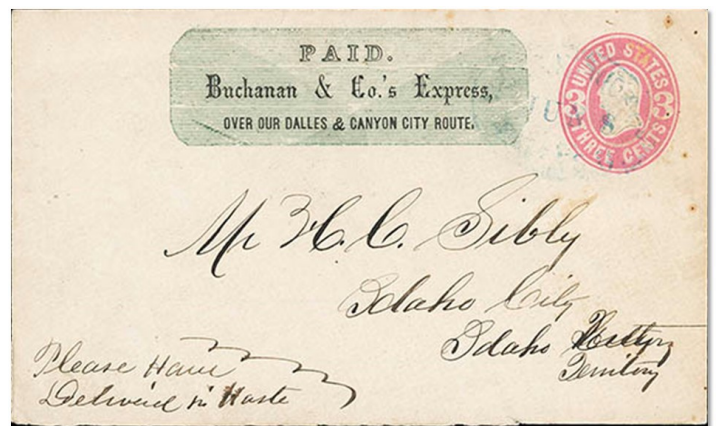 PAID.
Buchanan & Co.'s Express,
OVER OUR DALLES & CANYON CITY ROUTE.
UNITED STATES
THREE CENTS
JUN 8
Mr H. C. Sibly
Idaho City
Idaho
Territory
Please Have
Deliverd in Haste